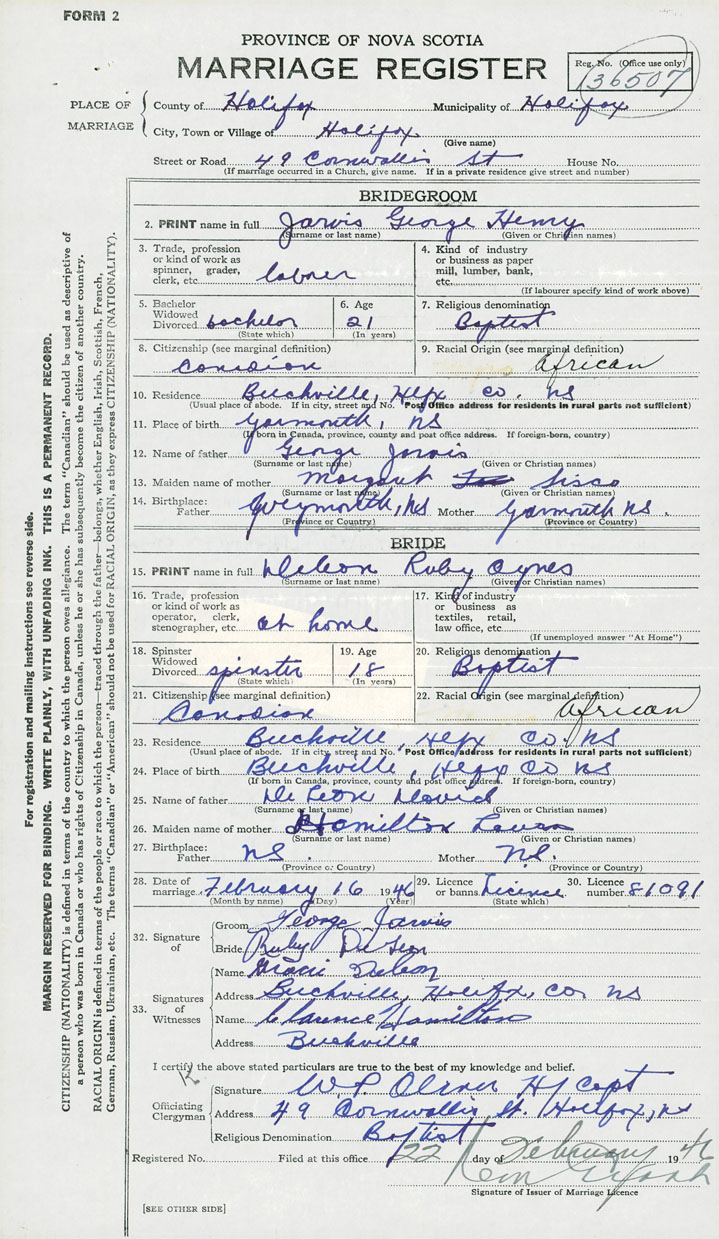 FORM 2
PROVINCE OF NOVA SCOTIA
MARRIAGE REGISTER
Reg. No. (Office use only)
136507
PLACE OF MARRIAGE
County of Holifox Municipality of Holifox
City, Town or Village of Holifox
(Give name)
Street or Road 49 Cornwallis St House No.
(If marriage occurred in a Church, give name. If in a private residence give street and number)
BRIDEGROOM
2. PRINT name in full Jarvis George Henry
(Surname or last name) (Given or Christian names)
3. Trade, profession or kind of work as spinner, grader, clerk, etc. labrer
4. Kind of industry or business as paper mill, lumber, bank, etc.
(If labourer specify kind of work above)
5. Bachelor Widowed Divorced bachelor
(State which)
6. Age 21
(In years)
7. Religious denomination Baptist
8. Citizenship (see marginal definition) Conodion
9. Racial Origin (see marginal definition) African
10. Residence Beechville, Hlfx co. NS
(Usual place of abode. If in city, street and No. Post Office address for residents in rural parts not sufficient)
11. Place of birth Yarmouth, NS
(If born in Canada, province, county and post office address. If foreign-born, country)
12. Name of father George Jarvis
(Surname or last name) (Given or Christian names)
13. Maiden name of mother Margaret Sisco
(Surname or last name) (Given or Christian names)
14. Birthplace: Father Weymouth, NS Mother Yarmouth NS.
(Province or Country) (Province or Country)
BRIDE
15. PRINT name in full DeLeon Ruby Agnes
(Surname or last name) (Given or Christian names)
16. Trade, profession or kind of work as operator, clerk, stenographer, etc. at home
17. Kind of industry or business as textiles, retail, law office, etc.
(If unemployed answer "At Home")
18. Spinster Widowed Divorced spinster
(State which)
19. Age 18
(In years)
20. Religious denomination Baptist
21. Citizenship (see marginal definition) Conodion
22. Racial Origin (see marginal definition) African
23. Residence Beechville, Hlfx Co. NS
(Usual place of abode. If in city, street and No. Post Office address for residents in rural parts not sufficient)
24. Place of birth Beechville, Hlfx Co NS
(If born in Canada, province, county and post office address. If foreign-born, country)
25. Name of father DeLeon David
(Surname or last name) (Given or Christian names)
26. Maiden name of mother Hamilton Laura
(Surname or last name) (Given or Christian names)
27. Birthplace: Father NS. Mother NS.
(Province or Country) (Province or Country)
28. Date of marriage February 16 1946
(Month by name) (Day) (Year)
29. Licence or banns Licence
(State which)
30. Licence number 81091
32. Signature of
Groom George Jarvis
Bride Ruby DeLeon
33. Signatures of Witnesses
Name Gracie Deleon
Address Beechville, Holifox, Co, NS
Name Clarence Hamilton
Address Beechville
I certify the above stated particulars are to the best of my knowledge and belief.
Officiating Clergyman
Signature W.P. Oliver H/Capt
Address 49 Cornwallis St. Holifox, NS
Religious Denomination Baptist
Registered No. Filed at this office 22 day of February 1946
Signature of Issuer of Marriage Licence
[SEE OTHER SIDE]
For registration and mailing instructions see reverse side.
MARGIN RESERVED FOR BINDING. WRITE PLAINLY, WITH UNFADING INK. THIS IS A PERMANENT RECORD.
CITIZENSHIP (NATIONALITY) is defined in terms of the country to which the person owes allegiance. The term "Canadian" should be used as descriptive of
a person who was born in Canada or who has rights of Citizenship in Canada, unless he or she has subsequently become the citizen of another country.
RACIAL ORIGIN is defined in terms of the people or race to which the person—traced through the father—belongs, whether English, Irish, Scottish, French,
German, Russian, Ukrainian, etc. The terms "Canadian" or "American" should not be used for RACIAL ORIGIN, as they express CITIZENSHIP (NATIONALITY).